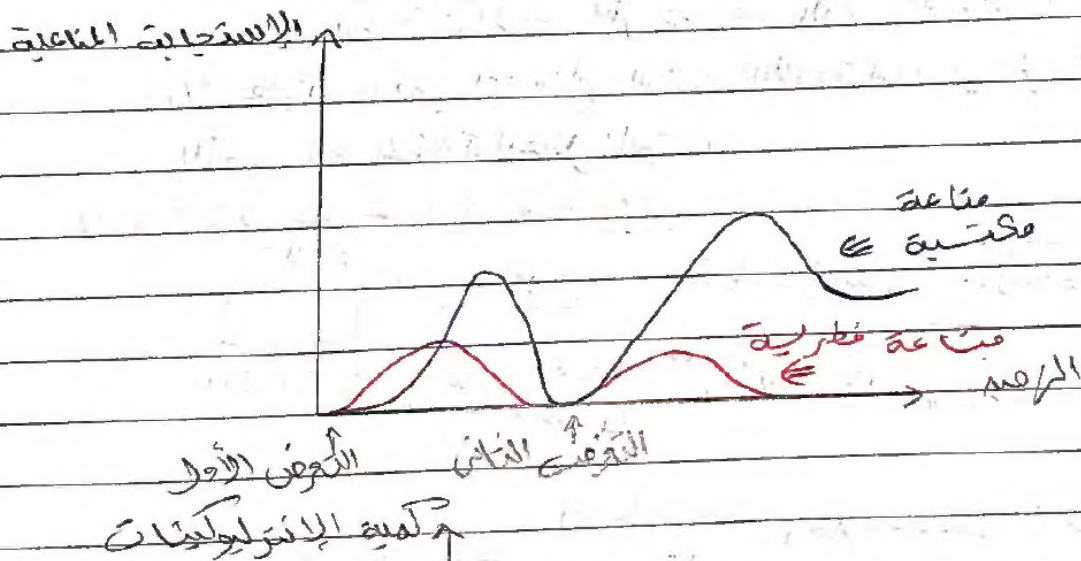 الإستجابة المناعية
مناعة
مكتسبة
مناعة فطرية
الزمن
التعرض الأول
التعرض الثاني
كمية الإنترليوكينات